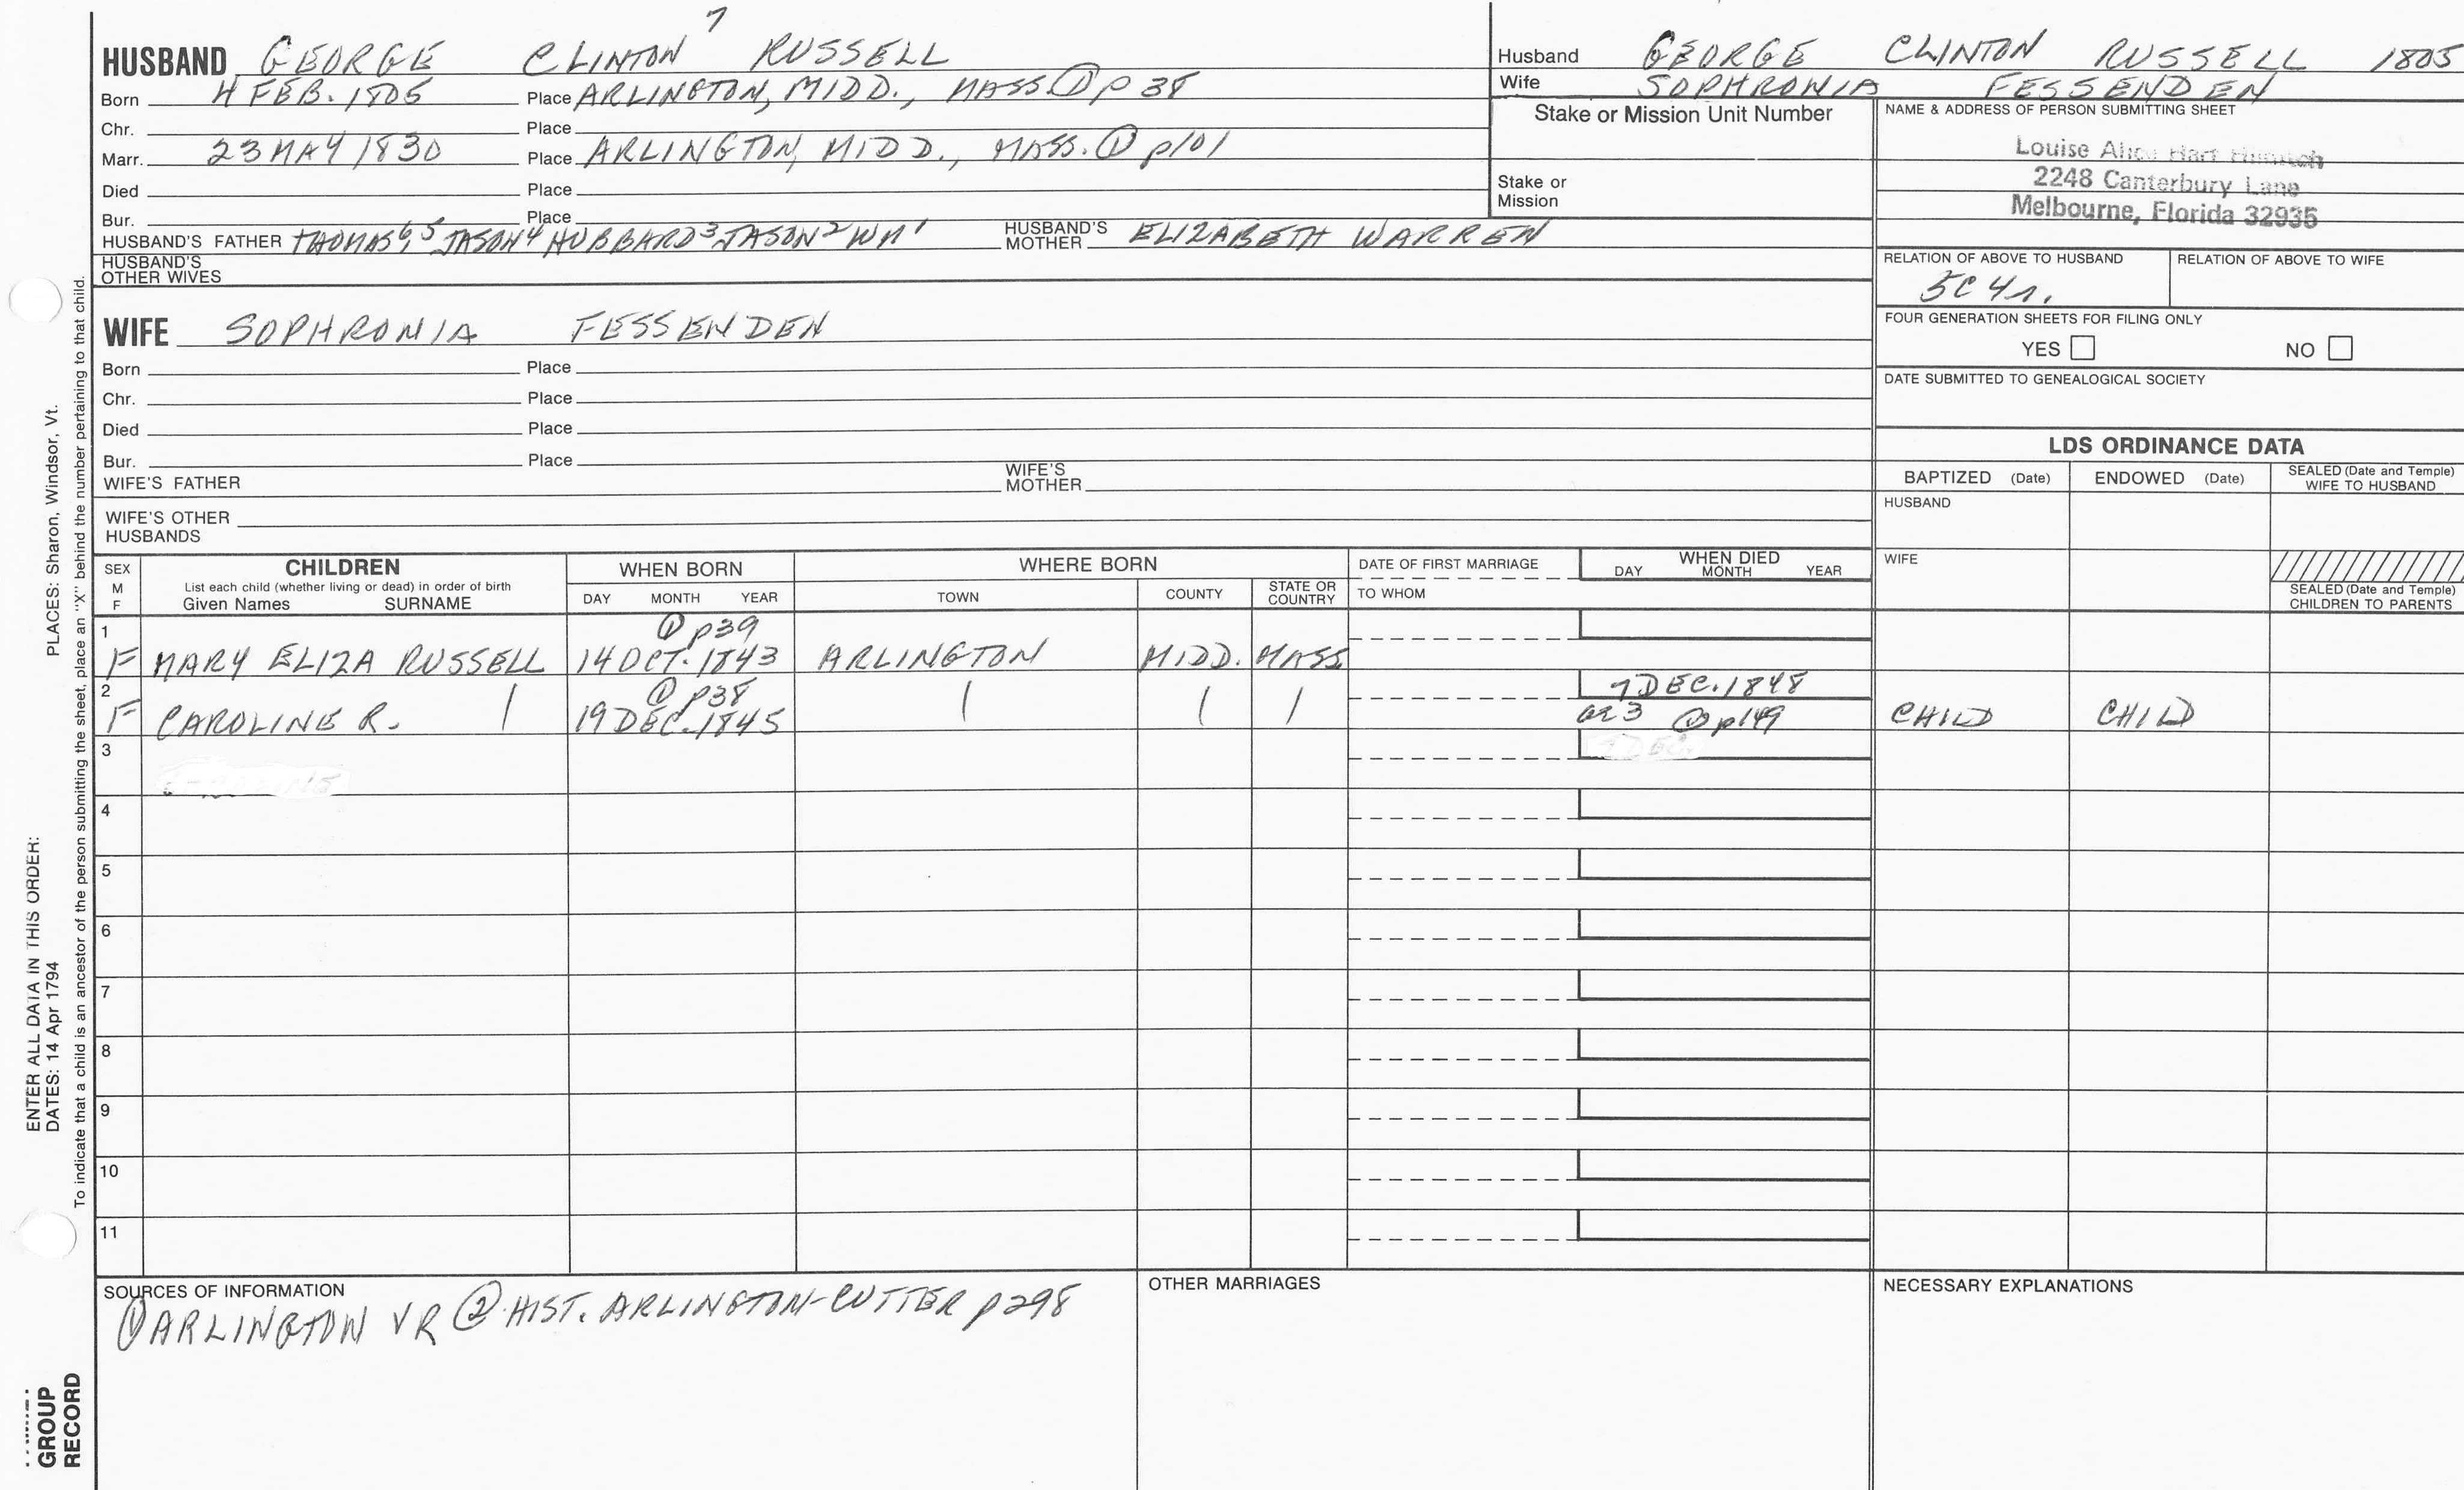 7
HUSBAND GEORGE CLINTON RUSSELL
Born 4 FEB. 1805 Place ARLINGTON, MIDD., MASS. ① p 38
Chr. Place
Marr. 23 MAY 1830 Place ARLINGTON, MIDD., MASS. ① p101
Died Place
Bur. Place
HUSBAND'S FATHER THOMAS 6, 5 JASON 4 HUBBARD 3 JASON 2 WM 1 HUSBAND'S MOTHER ELIZABETH WARREN
HUSBAND'S OTHER WIVES
Husband GEORGE CLINTON RUSSELL 1805
Wife SOPHRONIA FESSENDEN
Stake or Mission Unit Number
Stake or
Mission
NAME & ADDRESS OF PERSON SUBMITTING SHEET
Louise Alice Hart
2248 Canterbury Lane
Melbourne, Florida 32935
RELATION OF ABOVE TO HUSBAND RELATION OF ABOVE TO WIFE
5C 4r.
FOUR GENERATION SHEETS FOR FILING ONLY
YES NO
DATE SUBMITTED TO GENEALOGICAL SOCIETY
WIFE SOPHRONIA FESSENDEN
Born Place
Chr. Place
Died Place
Bur. Place
WIFE'S FATHER WIFE'S MOTHER
WIFE'S OTHER HUSBANDS
LDS ORDINANCE DATA
BAPTIZED (Date) ENDOWED (Date) SEALED (Date and Temple) WIFE TO HUSBAND
HUSBAND
WIFE
SEALED (Date and Temple) CHILDREN TO PARENTS
SEX M F
CHILDREN
List each child (whether living or dead) in order of birth
Given Names SURNAME
WHEN BORN
DAY MONTH YEAR
WHERE BORN
TOWN COUNTY STATE OR COUNTRY
DATE OF FIRST MARRIAGE
TO WHOM
WHEN DIED
DAY MONTH YEAR
1 ① p39
F MARY ELIZA RUSSELL 14 OCT. 1843 ARLINGTON MIDD. MASS.
2 ① p38 7 DEC. 1848
F CAROLINE R. | 19 DEC. 1845 | | | ae 3 ① p149 CHILD CHILD
3
4
5
6
7
8
9
10
11
SOURCES OF INFORMATION
① ARLINGTON VR ② HIST. ARLINGTON-CUTTER p298
OTHER MARRIAGES
NECESSARY EXPLANATIONS
ENTER ALL DATA IN THIS ORDER:
DATES: 14 Apr 1794 PLACES: Sharon, Windsor, Vt.
To indicate that a child is an ancestor of the person submitting the sheet, place an "X" behind the number pertaining to that child.
GROUP
RECORD